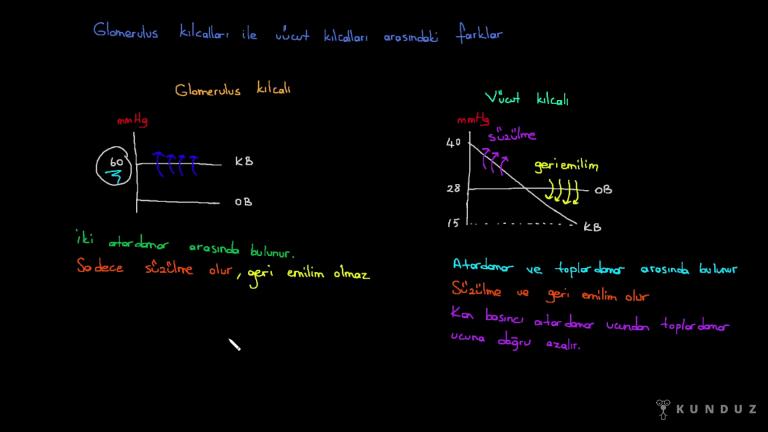 Glomerulus kılcalları ile vücut kılcalları arasındaki farklar
Glomerulus kılcalı
mmHg
60
KB
OB
İki atardamar arasında bulunur.
Sadece süzülme olur, geri emilim olmaz
Vücut kılcalı
mmHg
süzülme
40
geri emilim
28
OB
15
KB
Atardamar ve toplardamar arasında bulunur
Süzülme ve geri emilim olur
Kan basıncı atardamar ucundan toplardamar
ucuna doğru azalır.
KUNDUZ